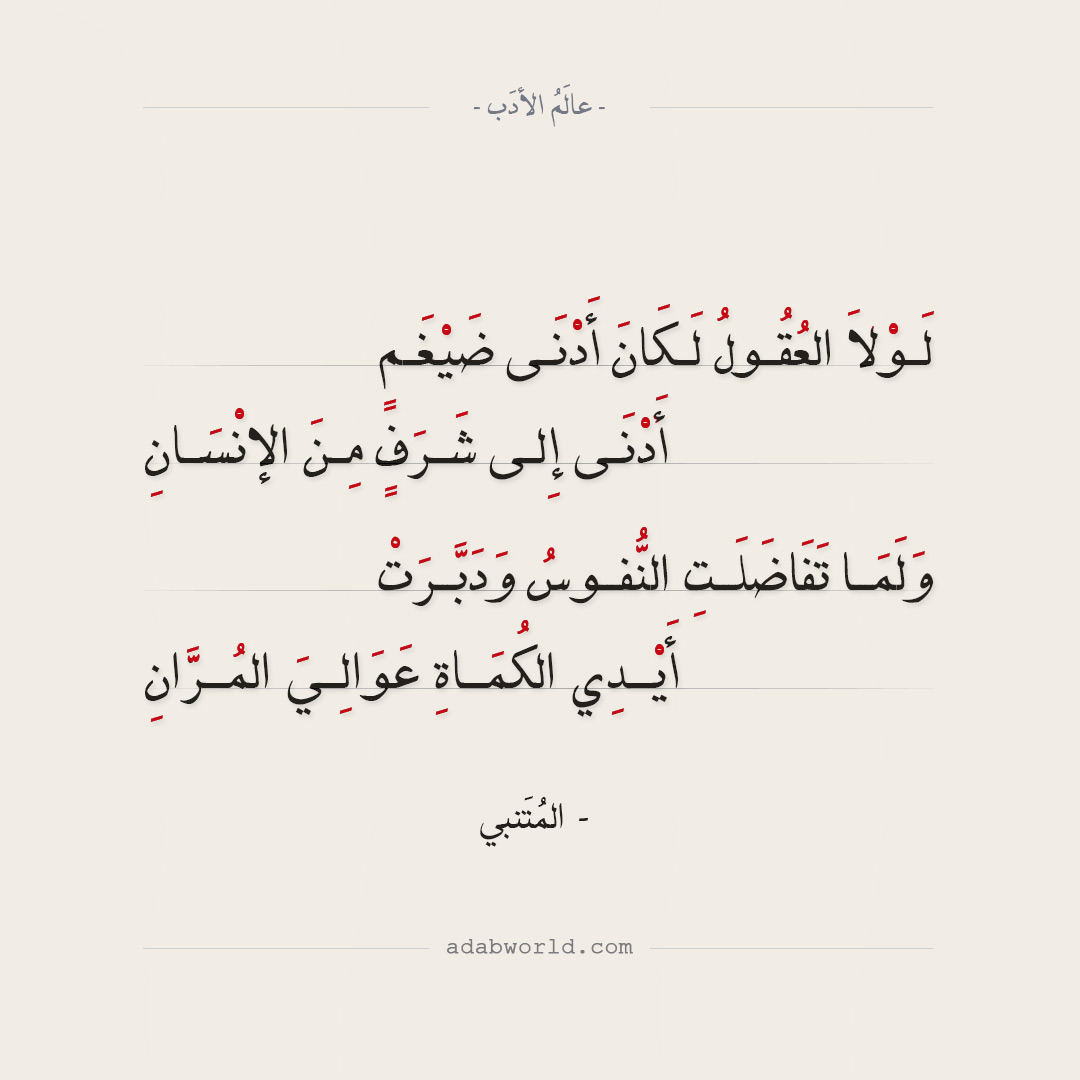 - عالَمُ الأدَب -
لَـوْلاَ العُقُـولُ لَـكَانَ أَدْنَـى ضَيْغَـمٍ
أَدْنَـى إِلـى شَـرَفٍ مِـنَ الإنْسَـانِ
وَلَمَـا تَفَاضَلَـتِ النُّفـوسُ وَدَبَّـرَتْ
أَيْـدِي الكُمَـاةِ عَوَالِـيَ المُـرَّانِ
- المُتَنبي
adabworld.com